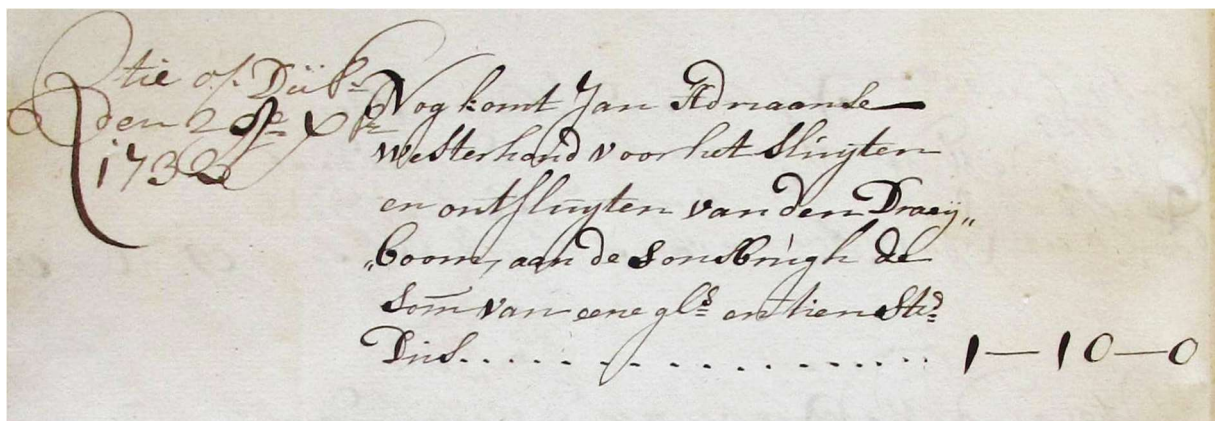 Qtie of Dük
den 28e Xbr
1732
Nog komt Jan Adriaanse
Westerhand voor het Sluÿten
en ontsluÿten van den Draeÿ„
„boom, aan de Sonsbrugh de
Som̅ van eene gls en tien Sts
Dus 1—10—0